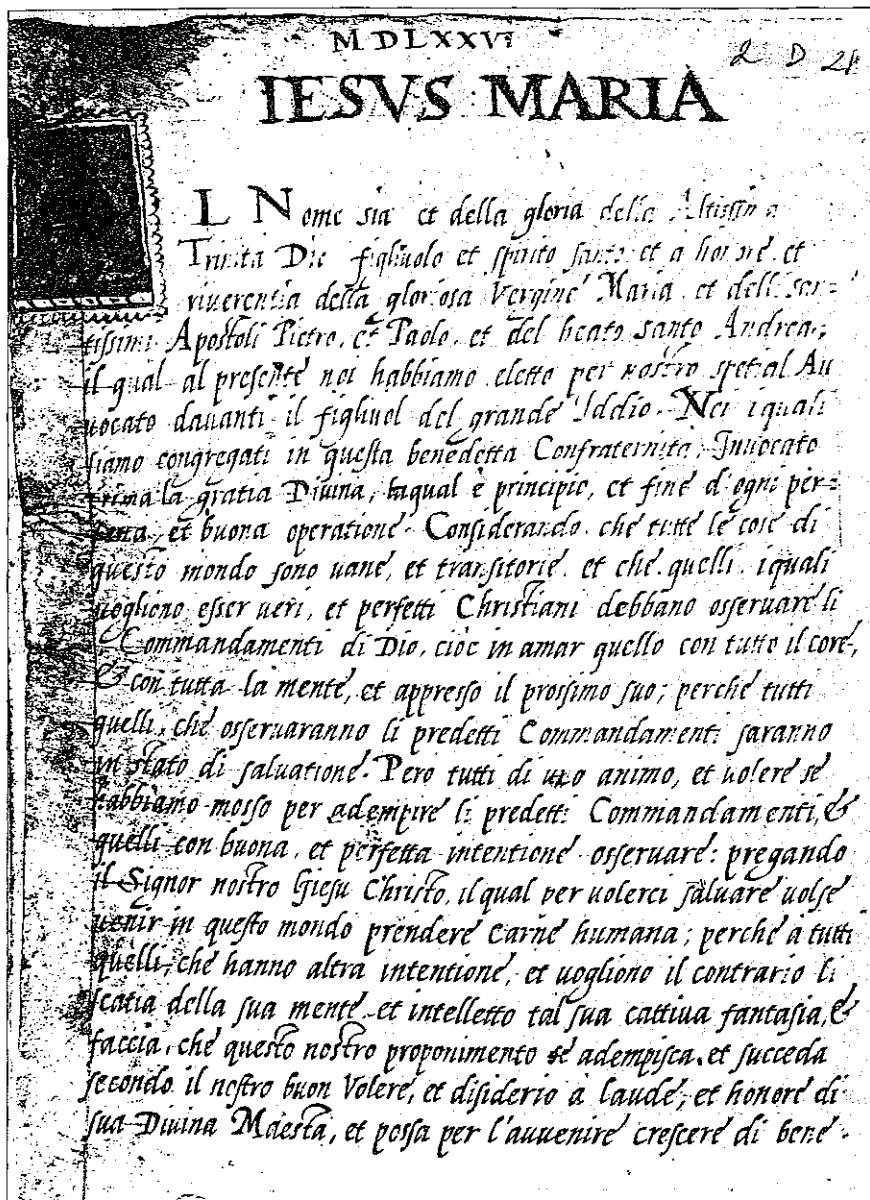 MDLXXVI
2 D 21
IESVS MARIA
L Nome sia et della gloria della Altissima
Trinita Dio figliuolo et spirito santo et a honore et
riverentia della gloriosa Vergine Maria et delli san=
tissimi Apostoli Pietro, et Paolo, et del beato santo Andrea,
il qual al presente noi habbiamo eletto per nostro spetial Au
uocato dauanti il figliuol del grande Iddio. Noi iquali
siamo congregati in questa benedetta Confraternita, Inuocato
prima la gratia Diuina, laqual è principio, et fine d'ogni per=
fetta, et buona operatione. Considerando che tutte le cose di
questo mondo sono uane, et transitorie. et che quelli iquali
uogliono esser ueri, et perfetti Christiani debbano osseruare li
Commandamenti di Dio, cioè in amar quello con tutto il core,
& con tutta la mente, et appresso il prossimo suo; perche tutti
quelli, che osseruaranno li predetti Commandamenti saranno
in stato di saluatione. Pero tutti di uno animo, et uolere se
habbiamo mosso per adempire li predetti Commandamenti, &
quelli con buona, et perfetta intentione osseruare: pregando
il Signor nostro Giesu Christo, il qual per uolerci saluare uolse
uenir in questo mondo prendere Carne humana; perche a tutti
quelli, che hanno altra intentione, et uogliono il contrario li
scatia della sua mente et intelletto tal sua cattiua fantasia, &
faccia, che questo nostro proponimento se adempisca, et succeda
secondo il nostro buon Volere, et disiderio à laude, et honore di
sua Diuina Maesta, et possa per l'auuenire crescere di bene.